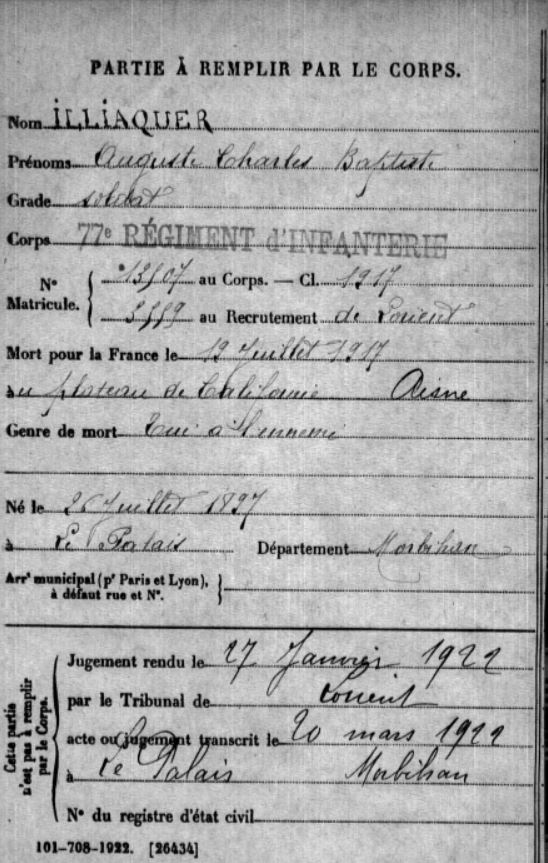 PARTIE À REMPLIR PAR LE CORPS.
Nom ILLIAQUER
Prénoms Auguste Charles Baptiste
Grade soldat
Corps 77e RÉGIMENT d'INFANTERIE
N° Matricule. 13507 au Corps. — Cl. 1917
3559 au Recrutement de Lorient
Mort pour la France le 19 Juillet 1917
au plateau de Californie Aisne
Genre de mort Tué à l'ennemi
Né le 26 Juillet 1897
à Le Palais Département Morbihan
Arrt municipal (pr Paris et Lyon),
à défaut rue et N°.
Cette partie n'est pas à remplir par le Corps.
Jugement rendu le 27 Janvier 1922
par le Tribunal de Lorient
acte ou jugement transcrit le 20 mars 1922
à Le Palais Morbihan
N° du registre d'état civil
101-708-1922. [26434]